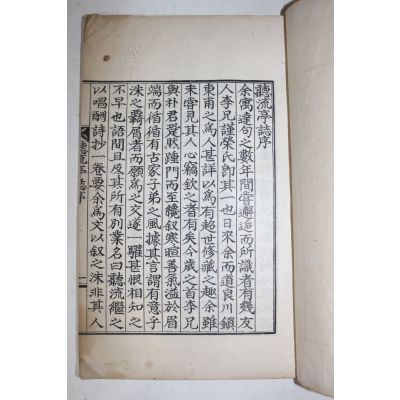 聽流亭誌序
余寓達句之數年間嘗邂逅而所識者有幾友
人李兄謹榮氏卽其一也日來余而道良川鎖
東甫之爲人甚詳以爲有超世修藏之趣余雖
未嘗見其人心竊欽之者有矣今歲之首李兄
與朴君
然踵門而至纔叙寒暄善氣溢於眉
端而循循有古家子弟之風據其言謂有意子
洙之覇屑者而願爲之交遂一驩甚恨相知之
不早也語間且及其所有別業名曰聽流繼之
以唱酬詩抄一卷要余爲文以叙之洙非其人
聽流亭誌序
一